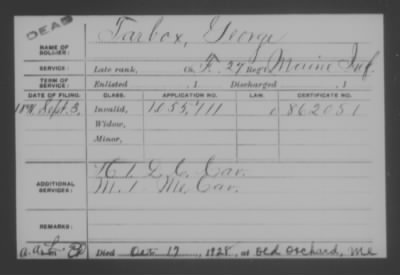 DEAD
NAME OF SOLDIER: Tarbox, George
SERVICE: Late rank, Co. F. 27 Reg't Maine Inf.
TERM OF SERVICE: Enlisted , 1 Discharged , 1
DATE OF FILING. CLASS. APPLICATION NO. LAW. CERTIFICATE NO.
1891 Sept. 3, Invalid, 1055,711 862051
Widow,
Minor,
ADDITIONAL SERVICES: K 1 D.C. Cav.
M. 1 Me. Cav.
REMARKS:
Died Oct 17, 1928, at Old Orchard, Me